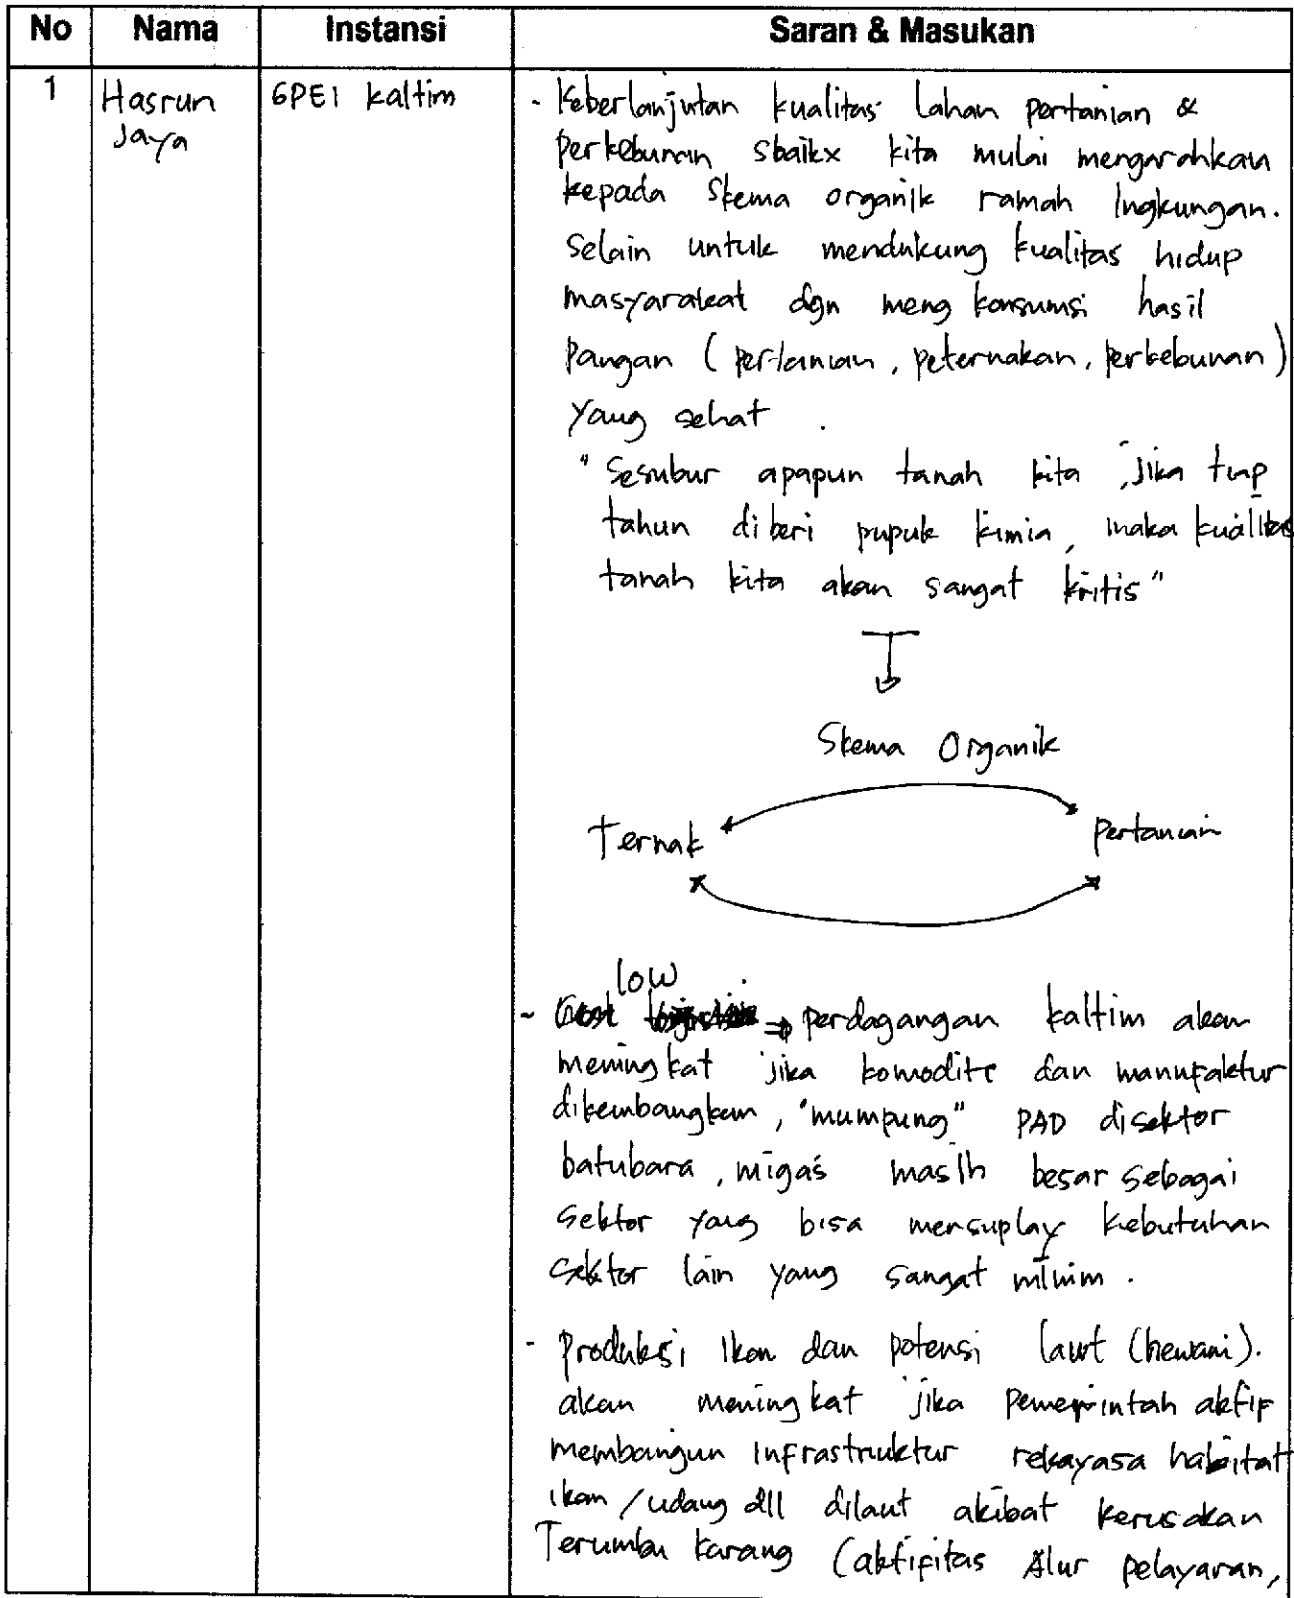 No Nama Instansi Saran & Masukan
1 Hasrun GPEI Kaltim - Keberlanjutan kualitas lahan pertanian &
Jaya perkebunan sbaikx kita mulai mengarahkan
kepada Skema organik ramah lngkungan.
Selain untuk mendukung kualitas hidup
masyarakat dgn meng konsumsi hasil
Pangan (pertanian, peternakan, perkebunan)
Yang sehat .
"Sesubur apapun tanah kita, jika tiap
tahun diberi pupuk kimia, maka kualitas
tanah kita akan sangat kritis"
Skema Organik
Ternak Pertanian
low
- Cost ⇒ perdagangan kaltim akan
meningkat jika komodite dan manufaktur
dikembangkan, "mumpung" PAD disektor
batubara, migas masih besar sebagai
Sektor yang bisa mensuplay kebutuhan
Sektor lain yang sangat minim.
- Produksi Ikan dan potensi laut (hewani).
akan meningkat jika Pemerintah aktif
membangun infrastruktur rekayasa habitat
ikan/udang dll dilaut akibat kerusakan
Terumbu karang (aktifitas Alur pelayaran,